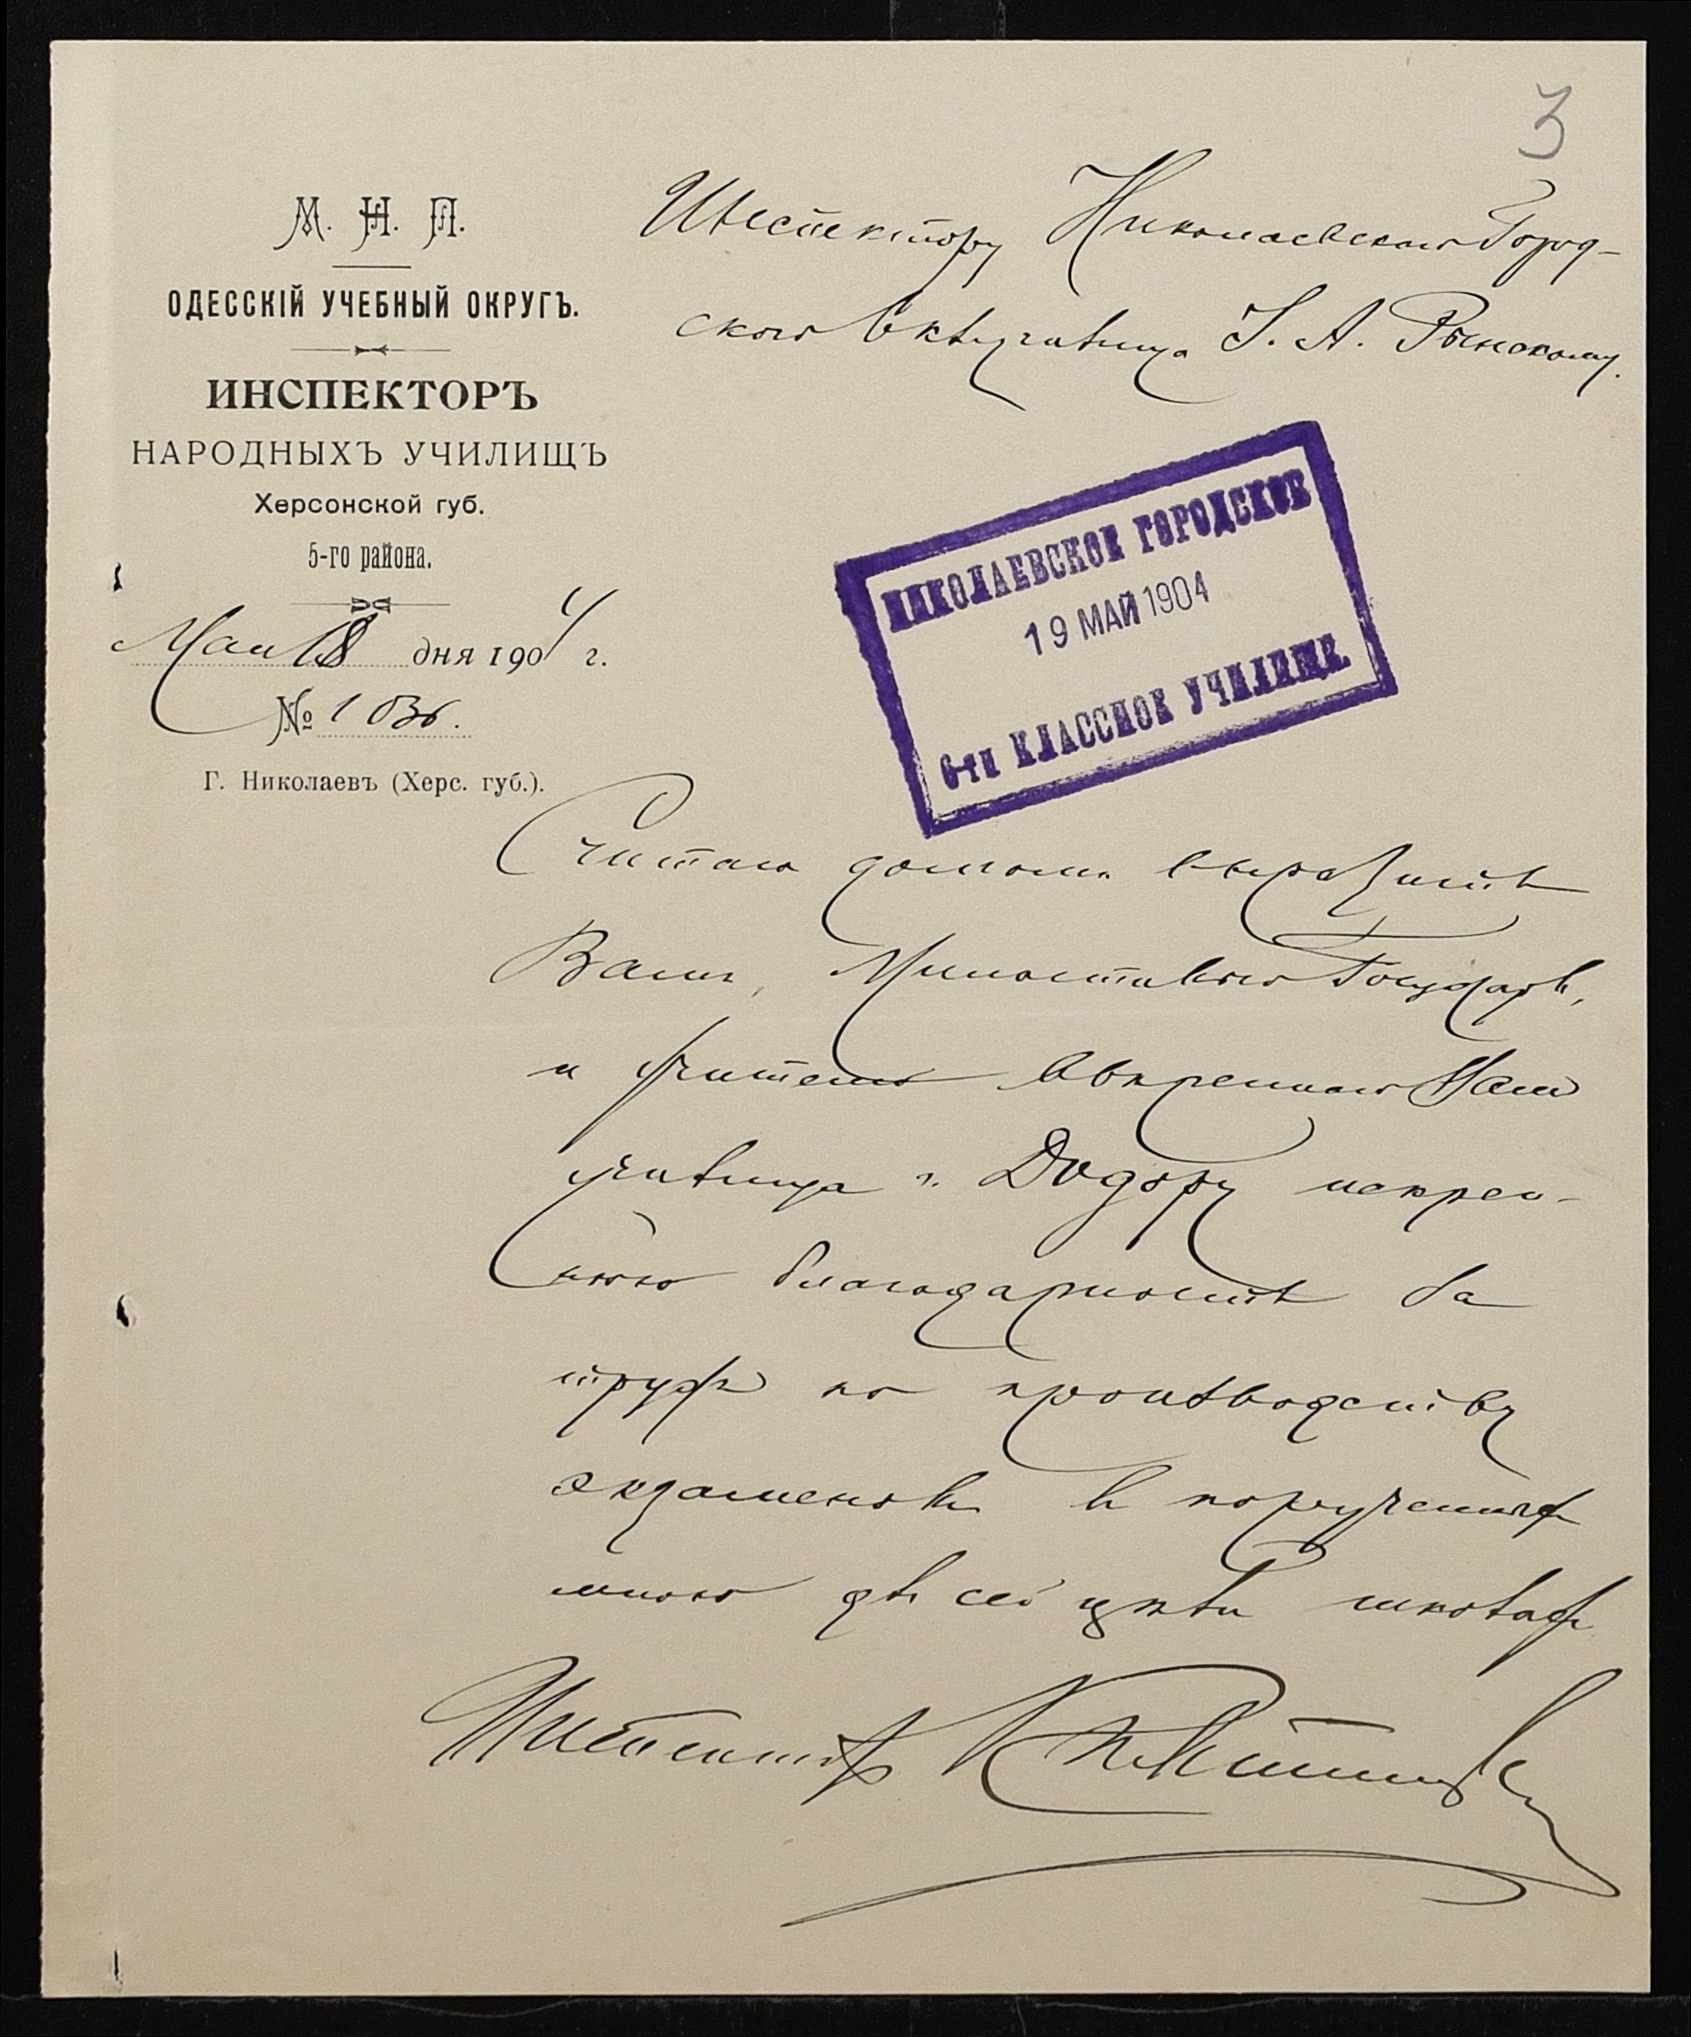 3
М. Н. П.
ОДЕССКІЙ УЧЕБНЫЙ ОКРУГЪ.
ИНСПЕКТОРЪ
НАРОДНЫХЪ УЧИЛИЩЪ
Херсонской губ.
5-го района.
Мая 18 дня 1904 г.
№ 1036.
Г. Николаевъ (Херс. губ.).
Инспектору Николаевскаго Город-
скаго 6 кл училища І. А. Рынскому.
НИКОЛАЕВСКОЕ ГОРОДСКОЕ
19 МАЙ 1904
6-ти КЛАССНОЕ УЧИЛИЩЕ.
Считаю долгомъ выразить
Вамъ, Милостивый Государь,
и учителю ввѣреннаго Вамъ
училища г. Додору искрен-
нюю благодарность за
труды по производству
экзаменовъ въ порученныхъ
мною школахъ
Инспекторъ